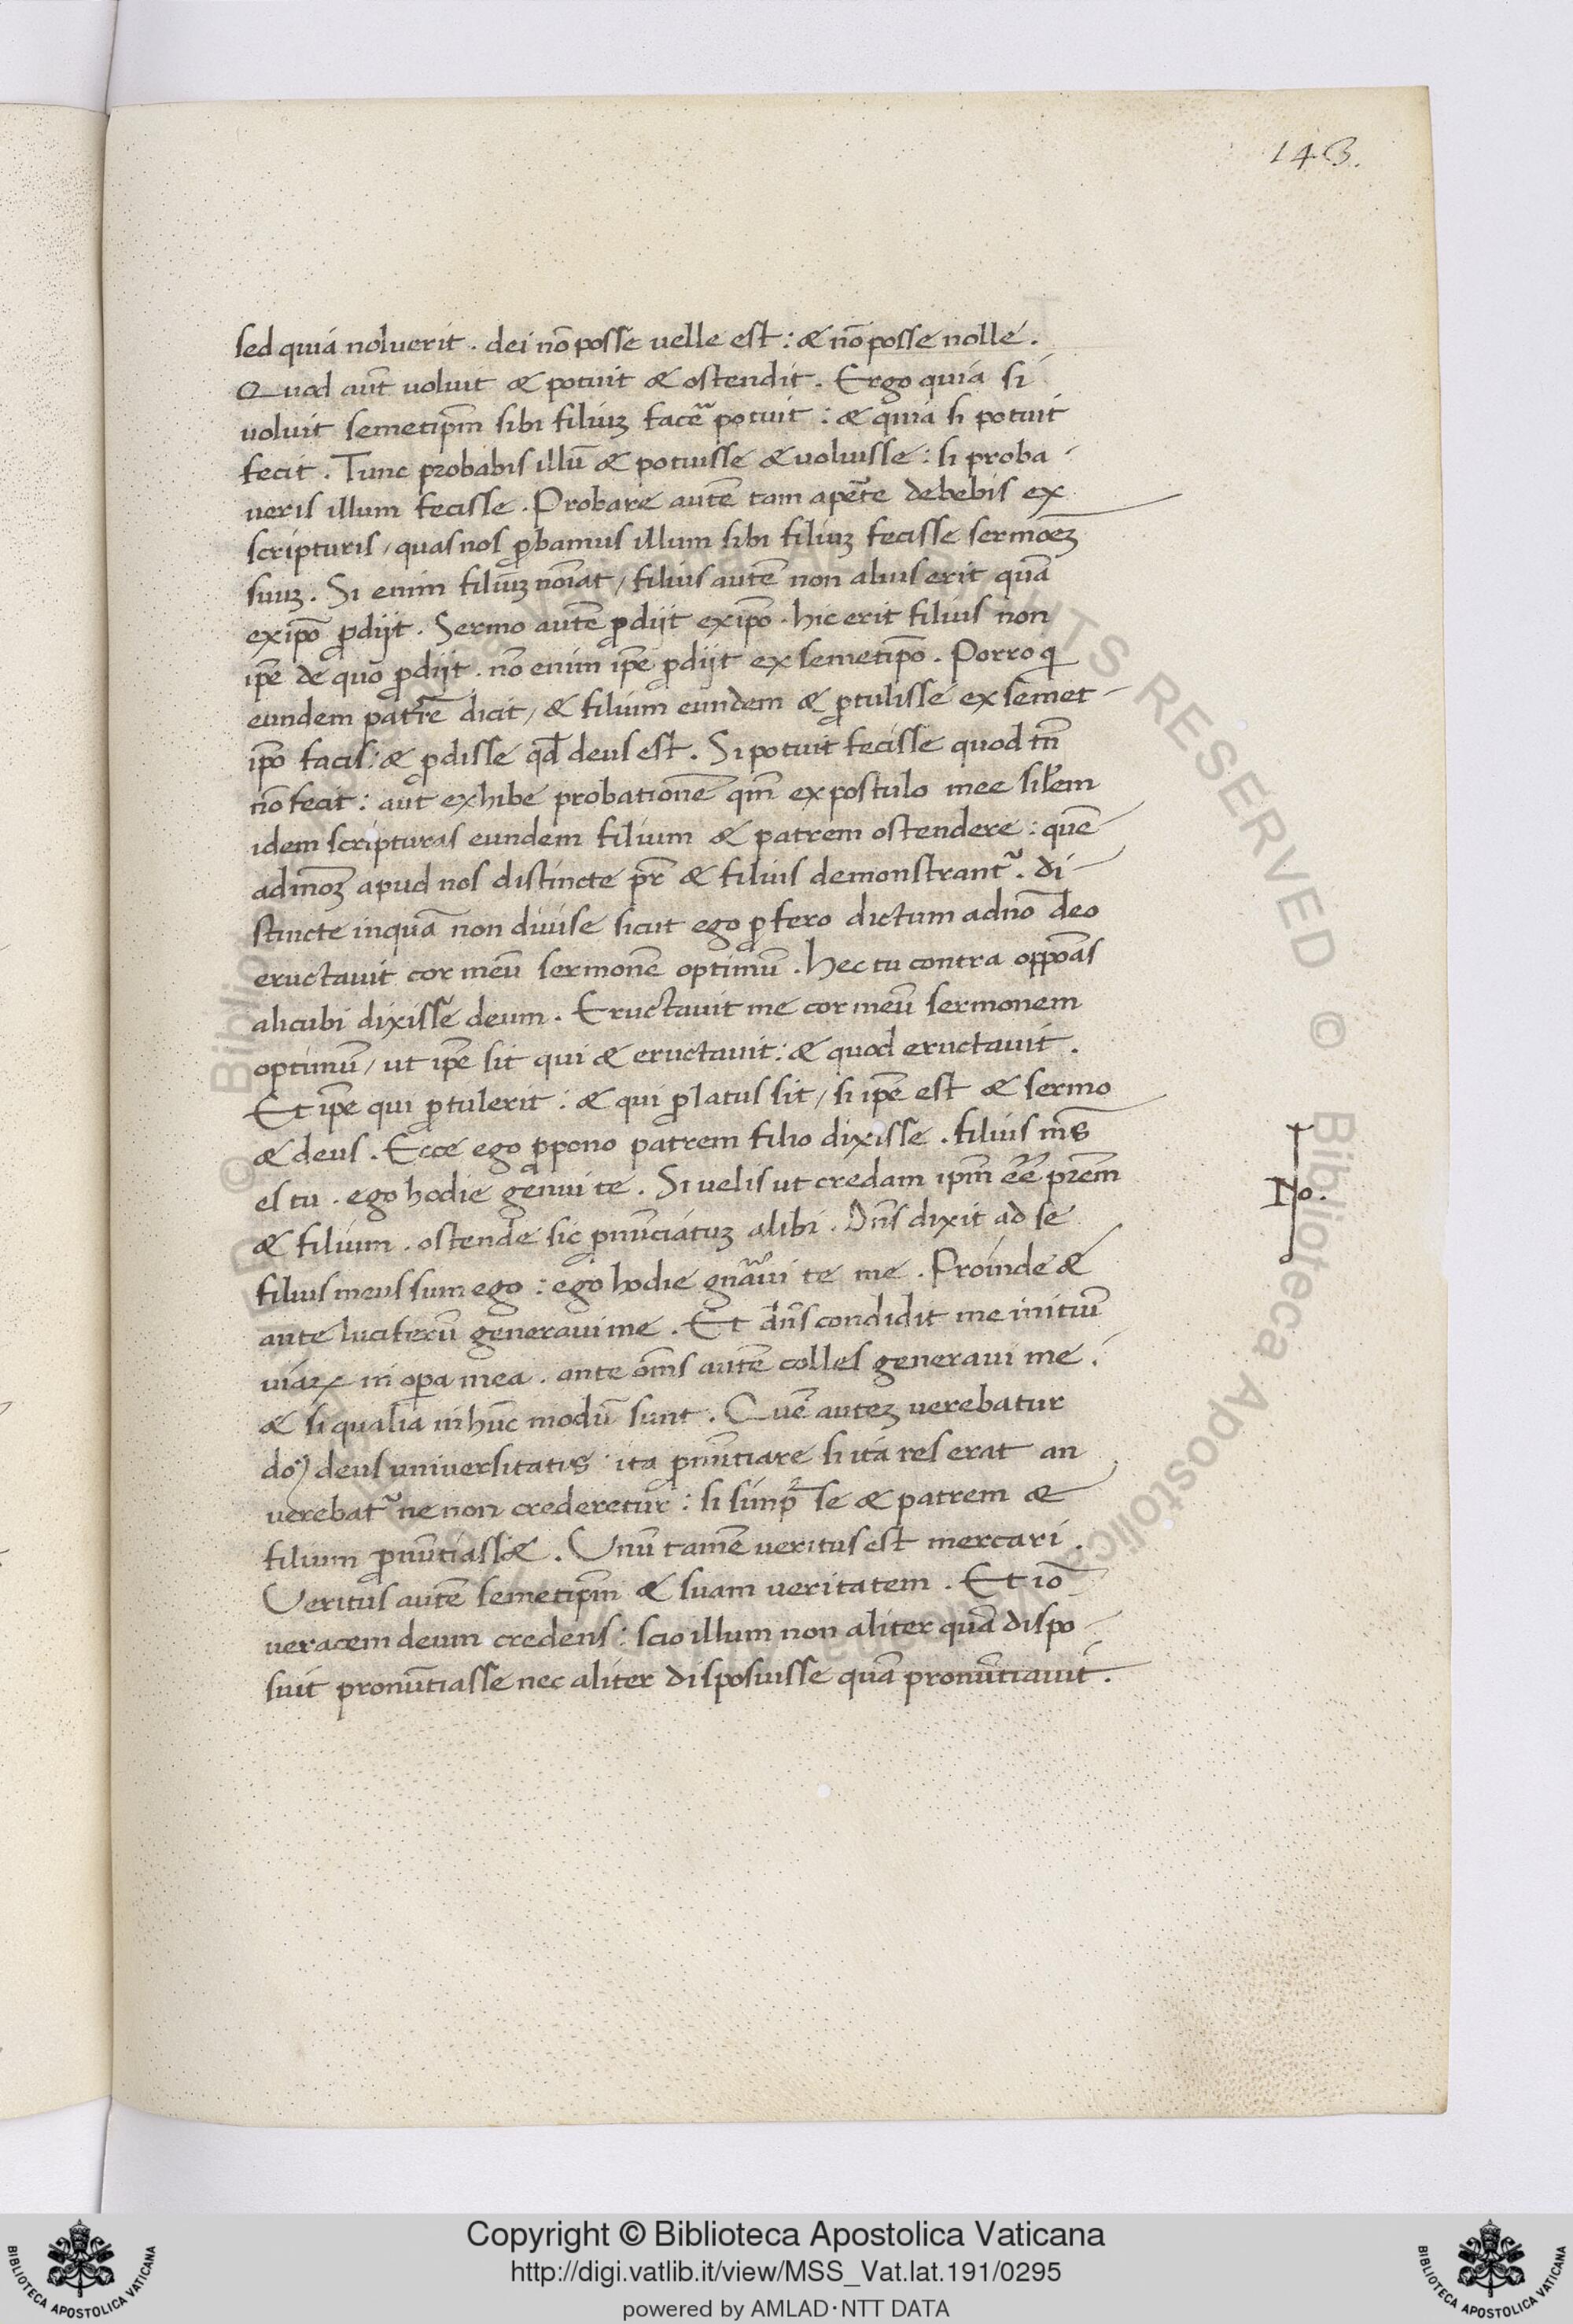 143.
sed quia noluerit. dei nō posse uelle est: & nō posse nolle.
Quod aut̄ uoluit & potuit & ostendit. Ergo quia si
uoluit semetip̄m sibi filiuꝫ facē potuit: & quia si potuit
fecit. Tunc probabis illū & potuisse & uoluisse: si proba-
ueris illum fecisse. Probare autē tam apēte debebis ex
scripturis/ quas nos ꝓbamus illum sibi filiuꝫ fecisse sermōeꝫ
suuꝫ. Si enim filiūꝫ nōiat/ filius autē non alius erit quā
ex ip̄o ꝓdijt. Sermo autē ꝓdijt ex ip̄o. hic erit filius non
ip̄e de quo ꝓdijt. nō enim ip̄e ꝓdijt ex semetip̄o. Porro q
eundem patrē dicit/ & filium eundem & ꝓtulisse ex semet-
ip̄o facis: & ꝓdisse qd̄ deus est. Si potuit fecisse quod tn̄
nō fecit: aut exhibe probationē qm̄ expostulo mee sil̄em
idem scripturas eundem filium & patrem ostendere: quē-
admōꝫ apud nos distincte pr̄ & filius demonstrant᷑. di-
stincte inquā non diuise sicut ego ꝓfero dictum adnō deo
eructauit cor meū sermonē optimū. Hec tu contra oppōas
alicubi dixisse deum. Eructauit me cor meū sermonem
optimū/ ut ip̄e sit qui & eructauit: & quod eructauit.
Et ip̄e qui ꝓtulerit: & qui ꝓlatus sit/ si ip̄e est & sermo
& deus. Ecce ego ꝓpono patrem filio dixisse. filius ms̄
es tu. ego hodie genui te. Si uelis ut credam ip̄m ee̅ prēm
& filium. ostende sic ꝓnunciatuꝫ alibi. Dn̄s dixit ad se
filius meus sum ego: ego hodie gnāui te me. Proinde &
ante luciferū generaui me. Et dn̄s condidit me initiū
uiaꝝ in oꝑa mea. ante om̄s autē colles generaui me.
& si qualia in hūc modū sunt. Quē auteꝫ uerebatur
deus uniuersitatis ita ꝓnūtiare si ita res erat an
uerebat᷑ ne non crederetur: si simp̄ se & patrem &
filium ꝓnūtiass&. Unū tamē ueritus est mercari.
Ueritus autē semetip̄m & suam ueritatem. Et iō
ueracem deum credens: scio illum non aliter quā dispo-
suit pronūtiasse nec aliter disposuisse quā pronūtiauit.
No.
© Biblioteca Apostolica Vaticana
ALL RIGHTS RESERVED
Copyright © Biblioteca Apostolica Vaticana
http://digi.vatlib.it/view/MSS_Vat.lat.191/0295
powered by AMLAD·NTT DATA
BIBLIOTECA APOSTOLICA VATICANA
BIBLIOTECA APOSTOLICA VATICANA